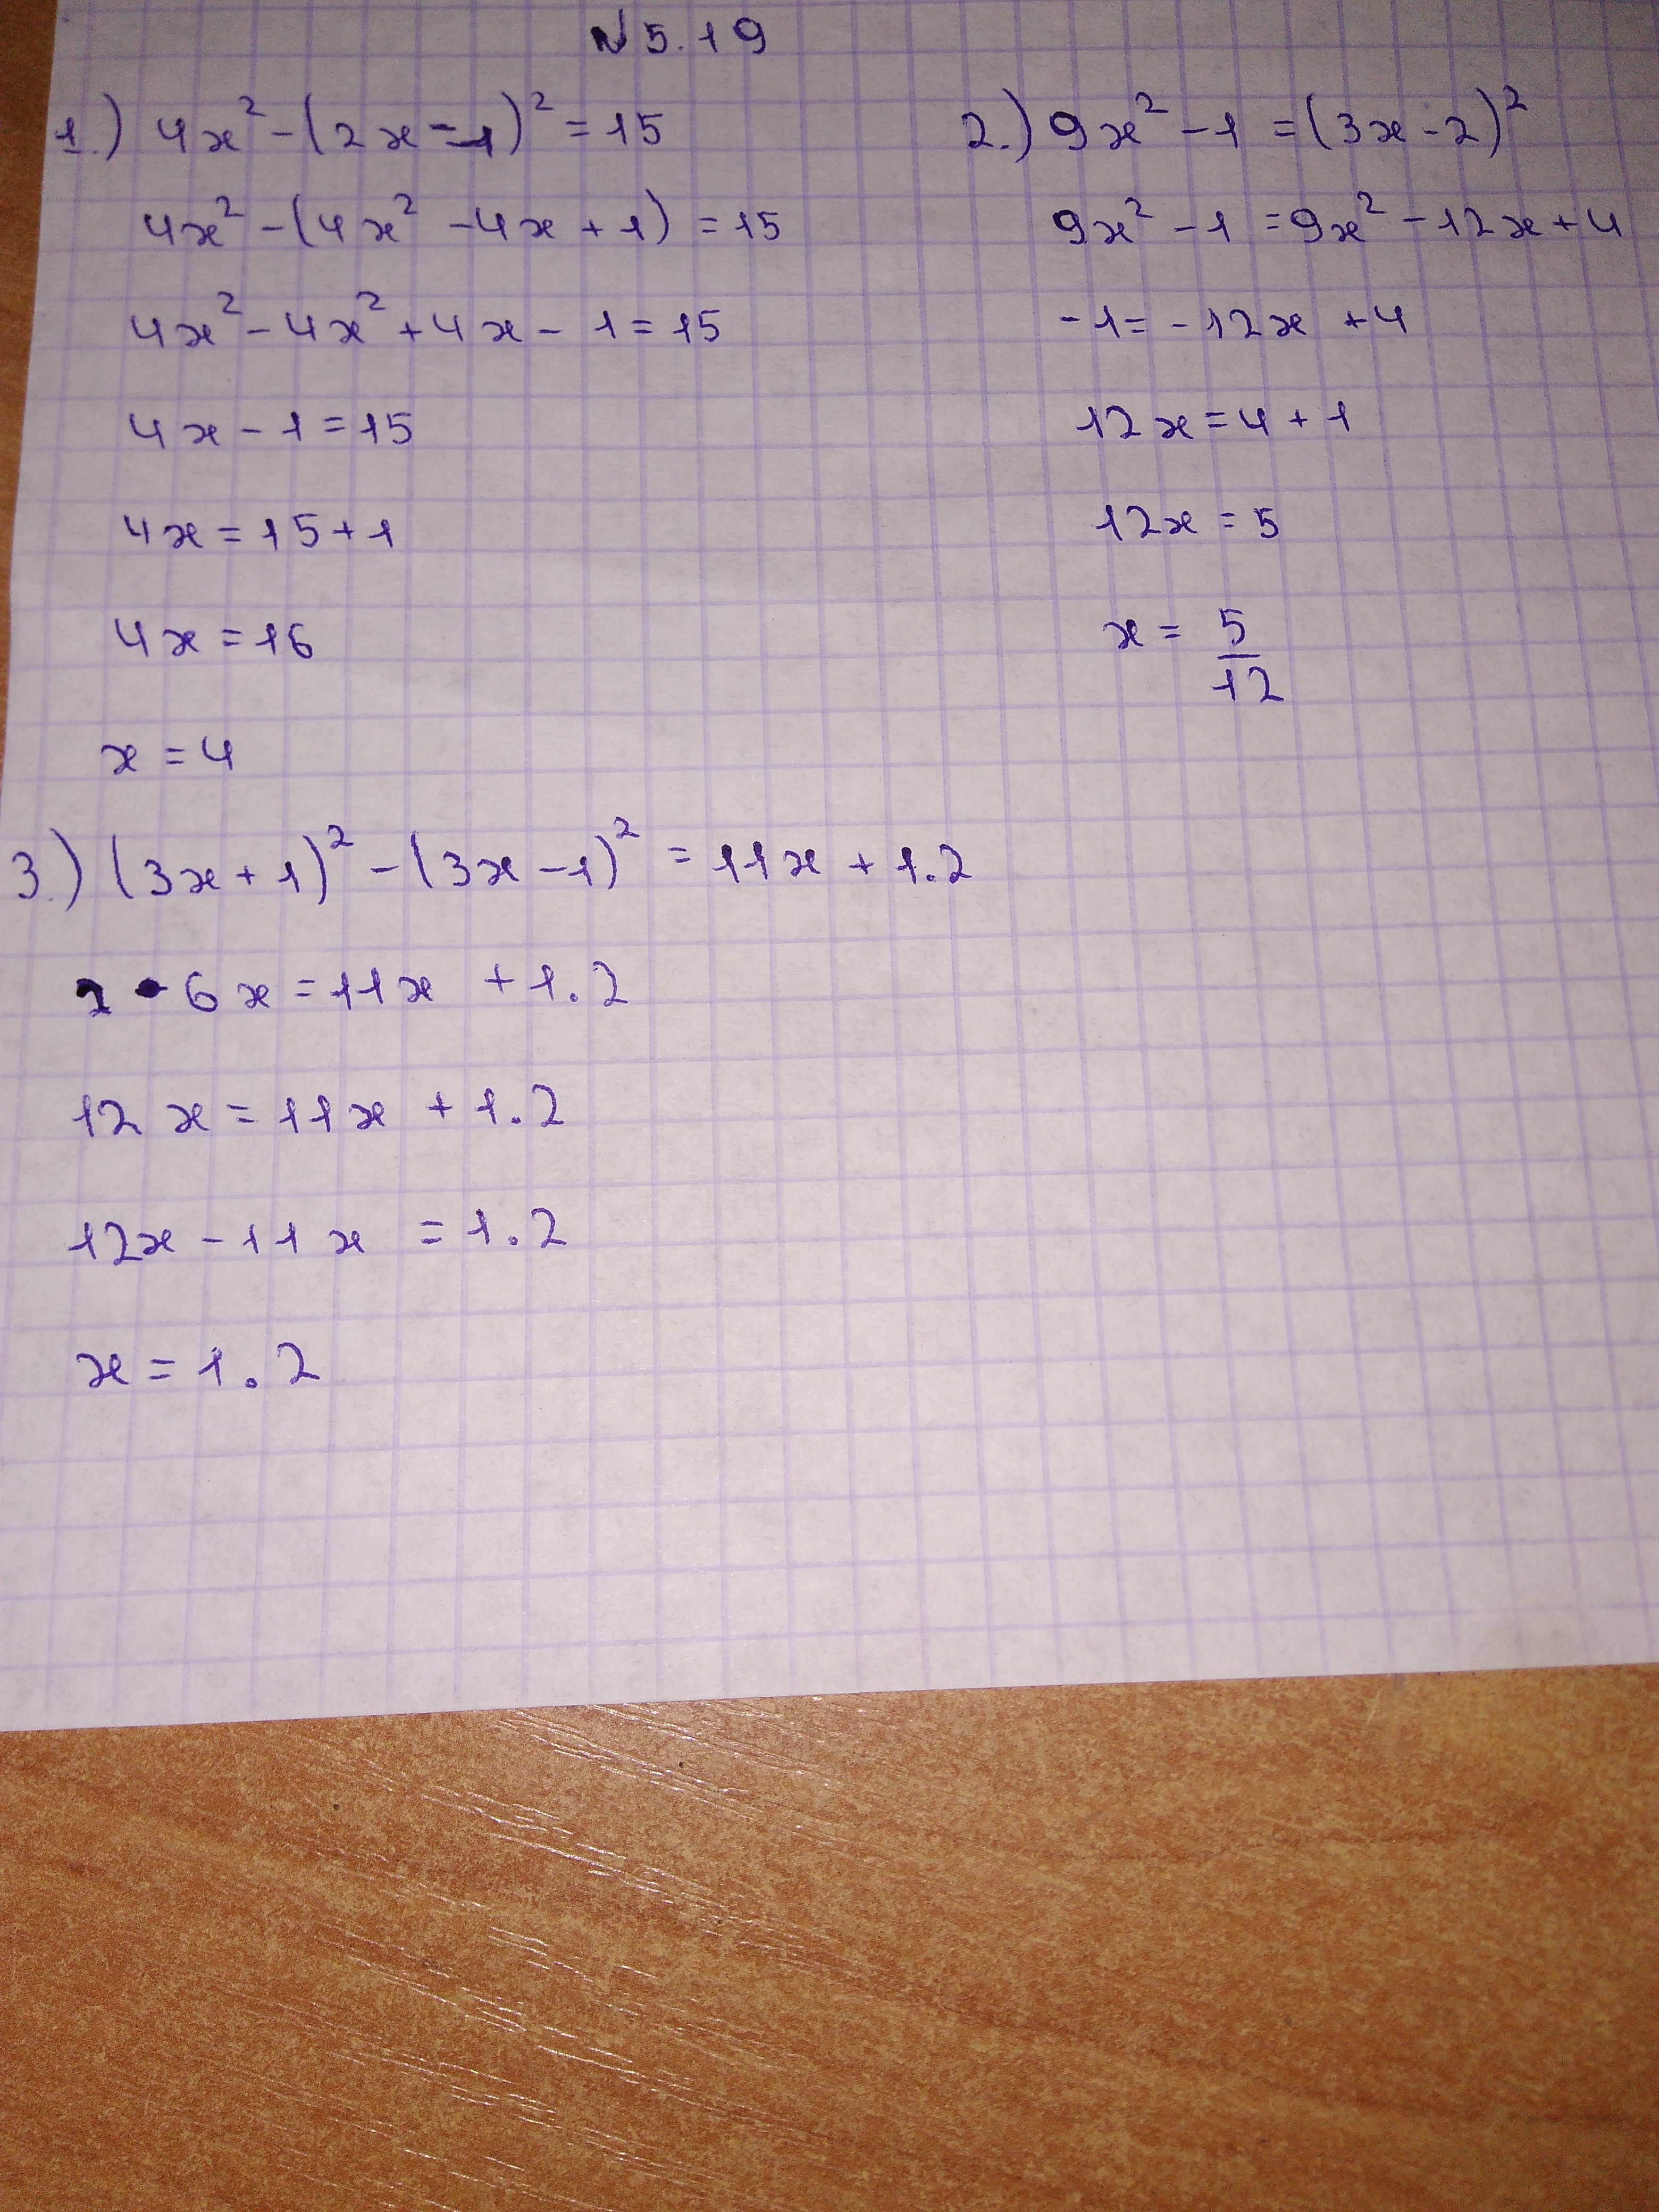 № 5.19
1.) 4x² - (2x - 1)² = 15
4x² - (4x² - 4x + 1) = 15
4x² - 4x² + 4x - 1 = 15
4x - 1 = 15
4x = 15 + 1
4x = 16
x = 4
2.) 9x² - 1 = (3x - 2)²
9x² - 1 = 9x² - 12x + 4
-1 = -12x + 4
12x = 4 + 1
12x = 5
x = 5/12
3.) (3x + 1)² - (3x - 1)² = 11x + 1.2
2 • 6x = 11x + 1.2
12x = 11x + 1.2
12x - 11x = 1.2
x = 1.2